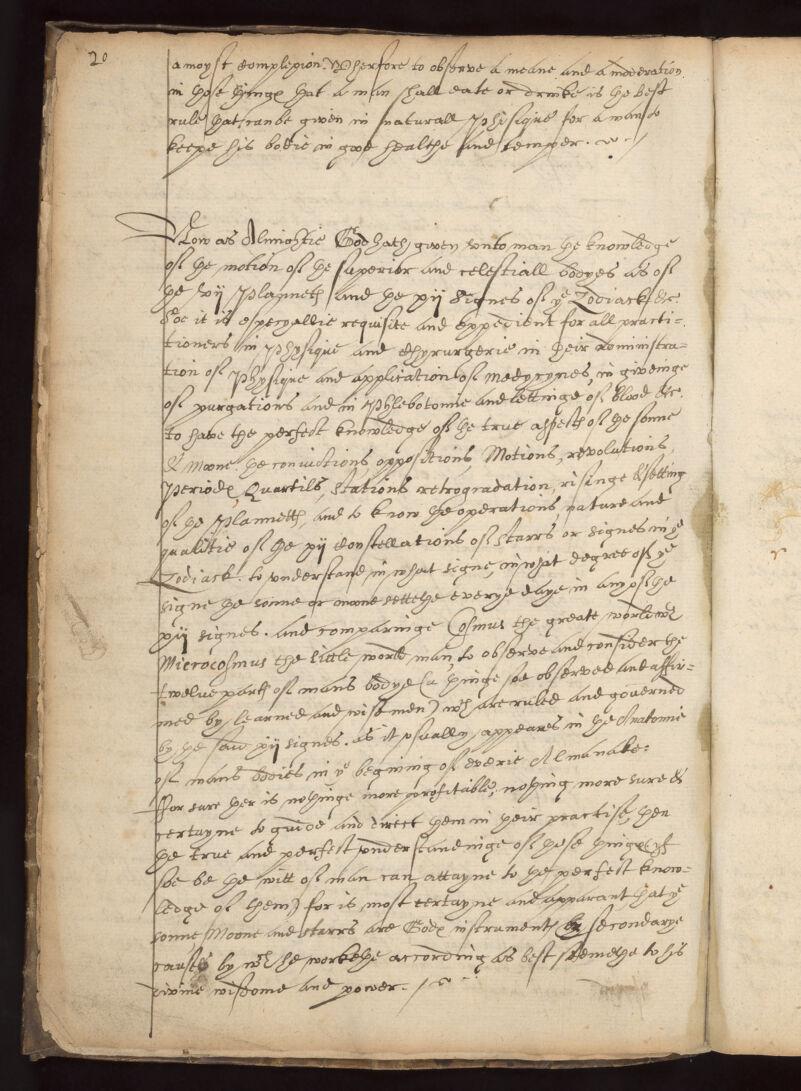 20
a moyst Complexion. Wherfore to observe a meane and a moderation
in these thinges that a man shall eate or drinke is the best
rule that can be given in naturall Phisique for a man to
keepe his bodie in good healthe and temper.
Now as Almightie God hath given unto man the knowledge
of the motion of the superior and celestiall bodyes as of
the vij Planneth and the xij Signes of ye Zodiack &c.
Soe it is especyallie requisite and expedient for all practi-
tioners in Physique and Chyrurgerie in their administra-
tion of Physique and application of medycynes, in giveinge
of purgations and in Phlebotomie and lettinge of blood &c.
to have the perfect knowledge of the true aspecth of the sonne
& moone, the coniuctions oppositions, Motions, revolutions,
Periodes, Quartils, stations retrogradation, risinge & setting
of the Plannetth, and to know the operations, nature and
qualitie of the xij Constellations of starrs or signes in ye
Zodiack. to understand in what signe, in what degree of ye
signe the sonne or moone setteth everye daye in any of the
xij signes. and comparinge Cosmus the greate world with
Microcosmus the little world man, to observe and consider the
twelve parth of mans bodye (a thinge soe observed and affir-
med by learned and wise men) wch are ruled and governed
by the said xij signes. as it usually appeares in the Anatomie
of mans bodies in ye begining of everie Almanake.
For sure ther is nothinge more profitable, nothing more sure &
certayne to guide and direct them in their practise, then
the true and perfect understandinge of these thinges (if
soe be the witt of man can attayne to the perfect know-
ledge of them) for is most certayne and apparant that ye
sonne Moone and starrs are Godes instrumenth by secondarye
causes by wch he workethe according as best seemethe to his
divine wisdome and power.